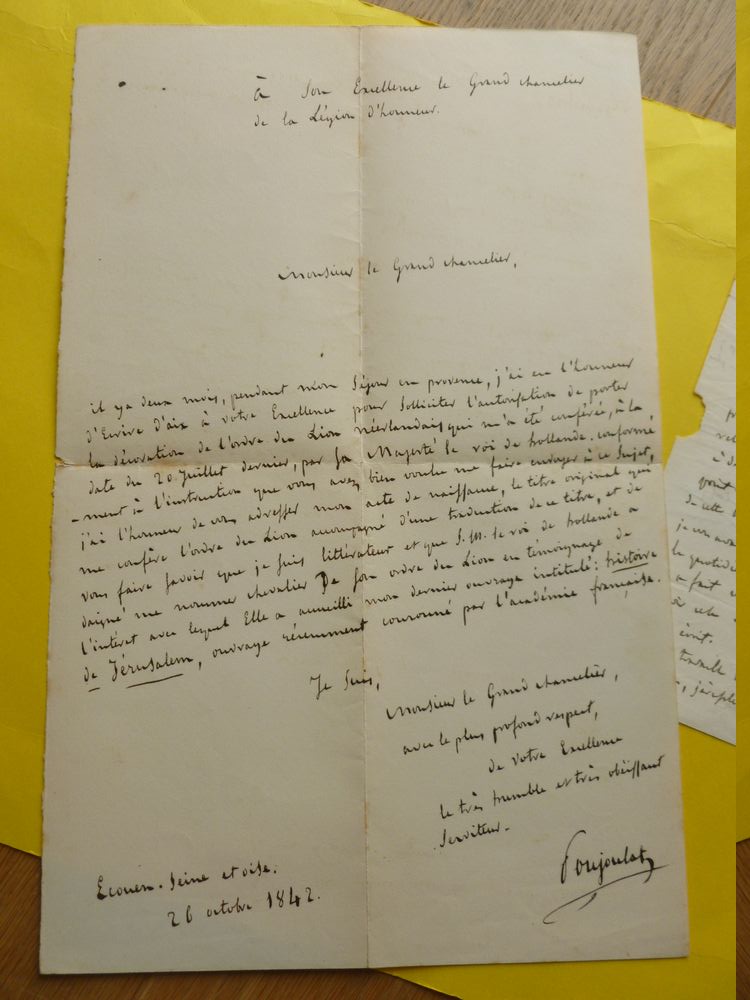 à Son Excellence le Grand chancelier
de la Légion d'honneur.
Monsieur le Grand chancelier,
il y a deux mois, pendant mon séjour en provence, j'ai eu l'honneur
d'Ecrire d'aix à votre Excellence pour solliciter l'autorisation de porter
la décoration de l'ordre du Lion néerlandais qui m'a été conférée, à la
date du 20 Juillet dernier, par sa Majesté le roi de hollande. conformé
-ment à l'instruction que vous avez bien voulu me faire envoyer à ce sujet,
j'ai l'honneur de vous adresser mon acte de naissance, le titre original qui
me confère l'ordre du Lion accompagné d'une traduction de ce titre, et de
vous faire savoir que je suis littérateur et que S. M. le roi de hollande a
daigné me nommer chevalier De son ordre du Lion en témoignage de
l'intérêt avec lequel Elle a accueilli mon dernier ouvrage intitulé: histoire
de Jérusalem, ouvrage récemment couronné par l'académie française.
Je suis,
Monsieur le Grand chancelier,
avec le plus profond respect,
de votre Excellence
le très humble et très obéissant
Serviteur.
Poujoulat
Ecouen. Seine et oise.
26 octobre 1842.
à d
point
de cette
le quotidie
a fait
à cela
écrit.
travaill